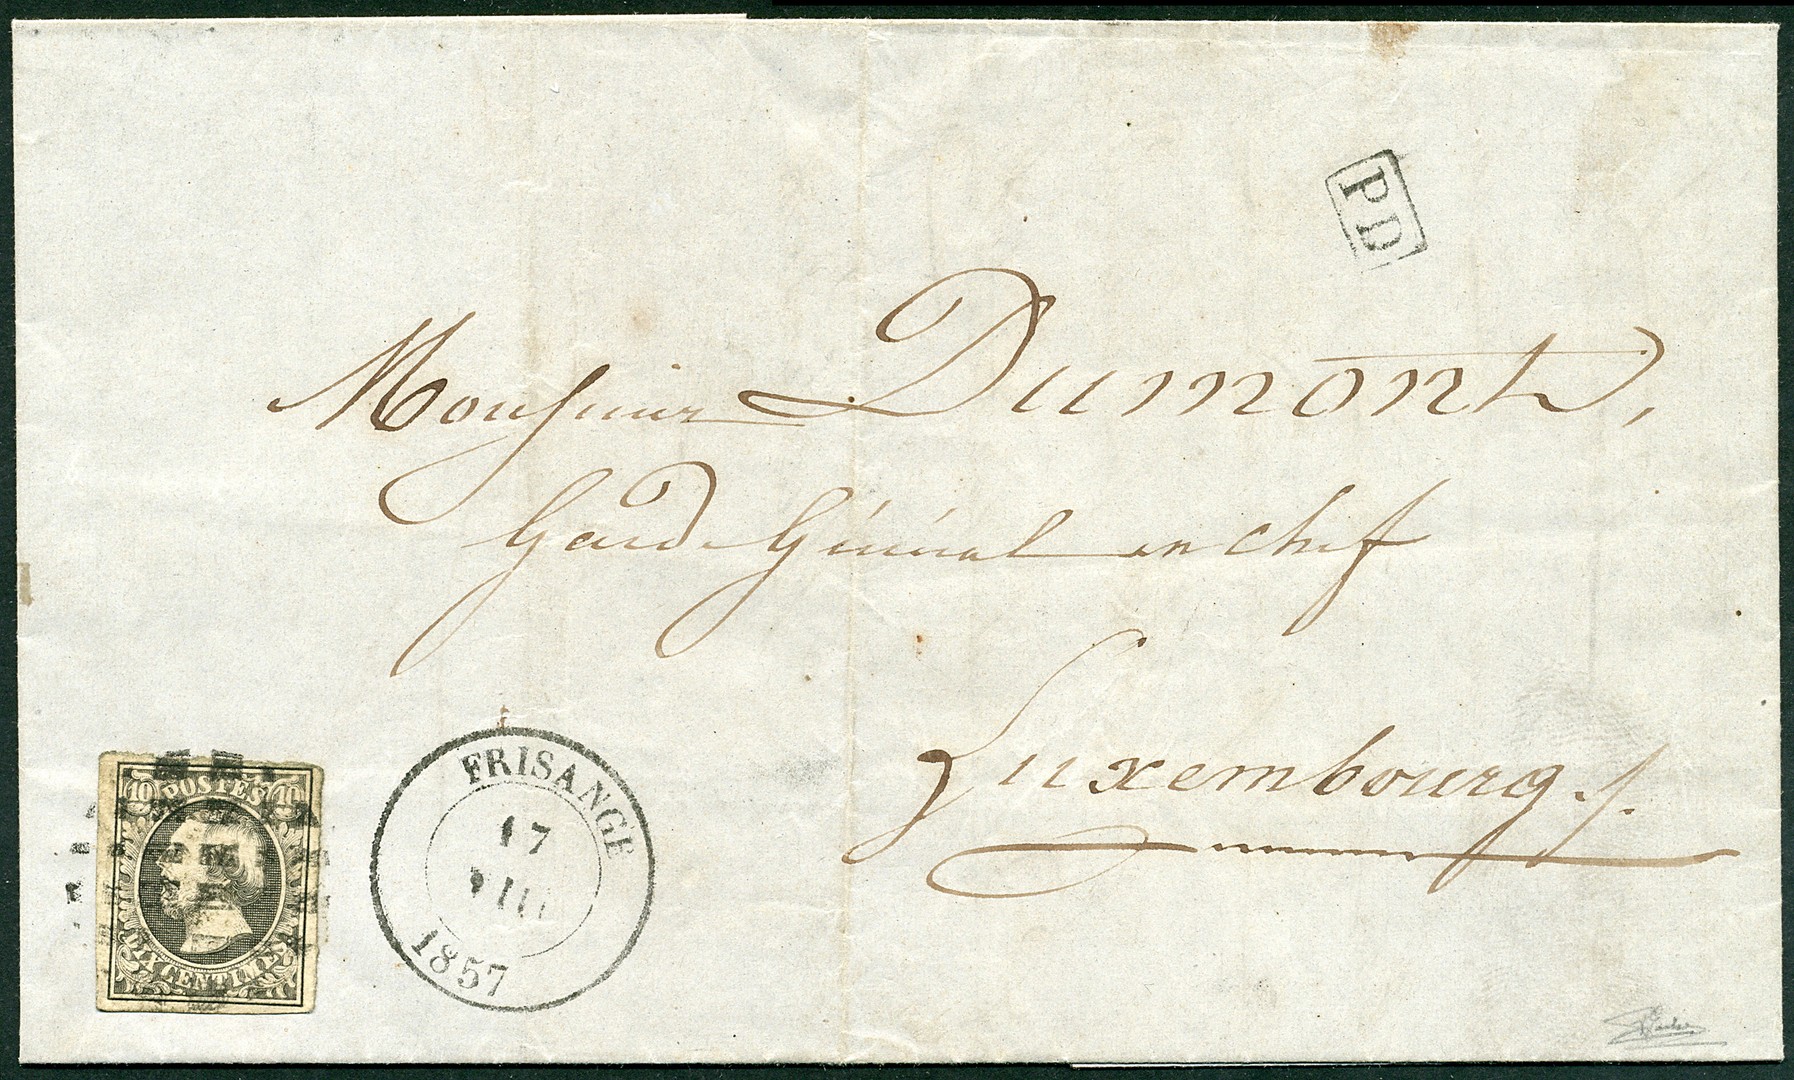 PD
Monsieur Dumont,
Garde Général en chef
Luxembourg
10 POSTES 10
DIX CENTIMES
FRISANGE
17
VIII
1857